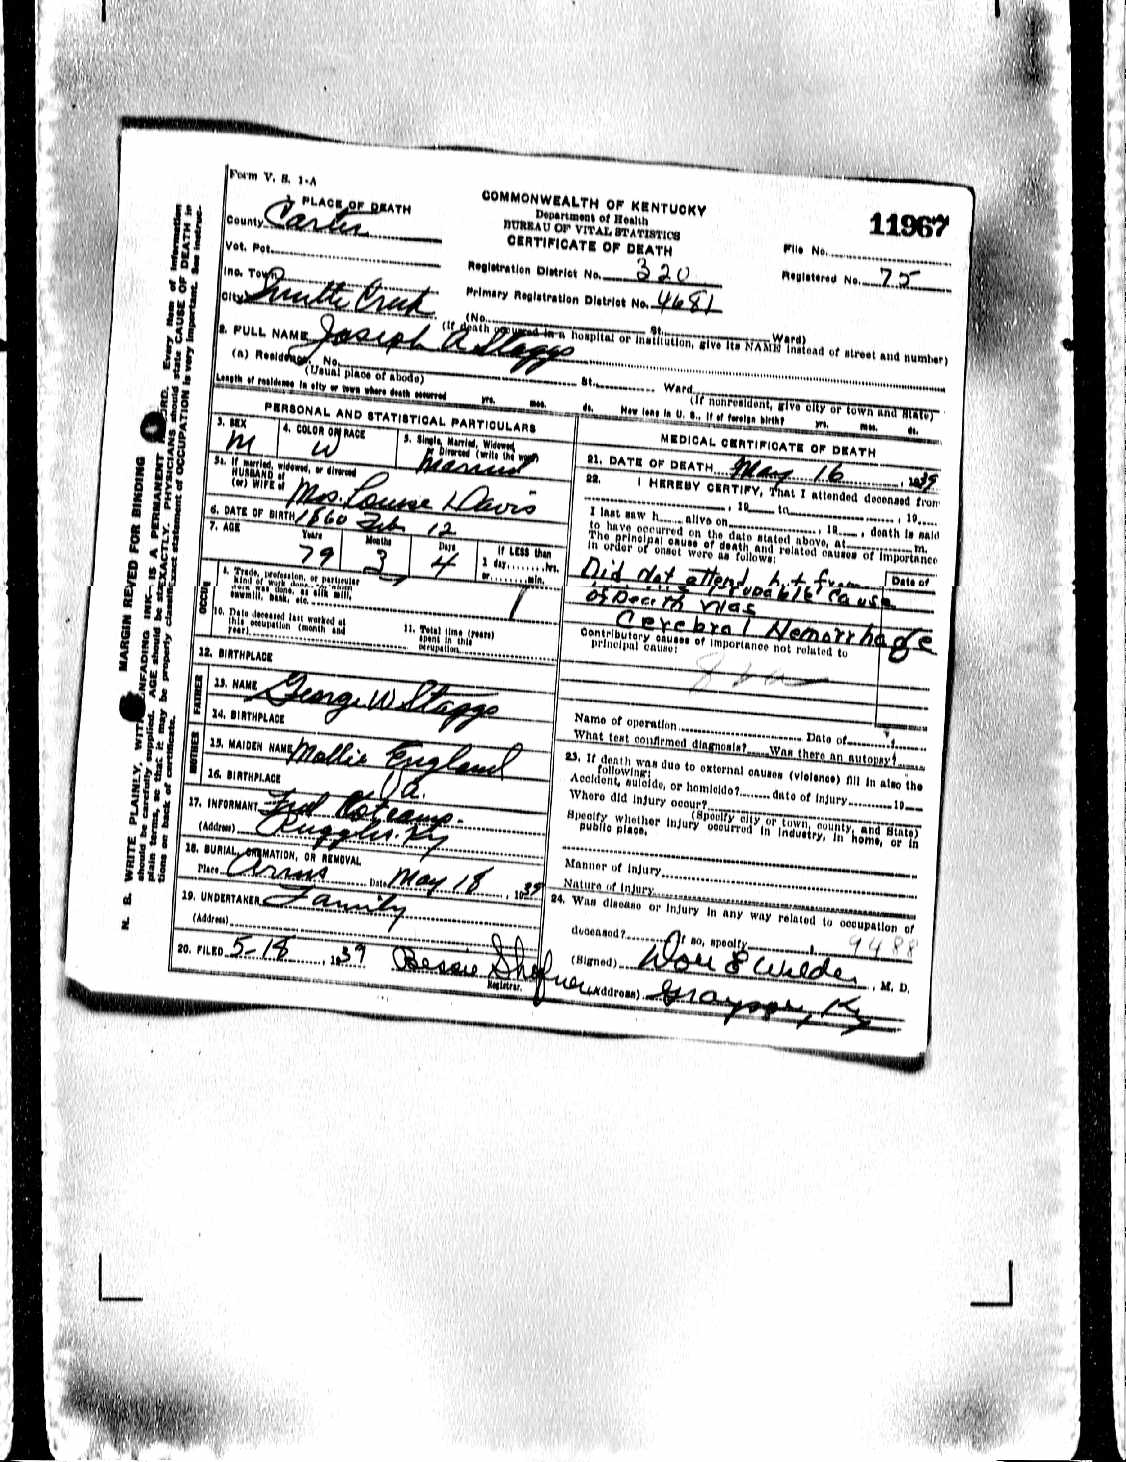 Form V. S. 1-A
COMMONWEALTH OF KENTUCKY
Department of Health
BUREAU OF VITAL STATISTICS
CERTIFICATE OF DEATH
11967
File No.
Registered No. 75
Registration District No. 320
Primary Registration District No. 4681
PLACE OF DEATH
County Carter
Vot. Pct.
Inc. Town
City Smith Creek
(No. St. Ward)
(If death occurred in a hospital or institution, give its NAME instead of street and number)
2. FULL NAME Joseph A Staggs
(a) Residence, No. St. Ward
(Usual place of abode) (If nonresident, give city or town and State)
Length of residence in city or town where death occurred yrs. mos. ds. How long in U. S., if of foreign birth? yrs. mos. ds.
PERSONAL AND STATISTICAL PARTICULARS
3. SEX M
4. COLOR OR RACE W
5. Single, Married, Widowed, or Divorced (write the word) Married
5a. If married, widowed, or divorced
HUSBAND of
(or) WIFE of Mrs. Louise Davis
6. DATE OF BIRTH 1860 Feb 12
7. AGE Years 79 Months 3 Days 4 If LESS than 1 day hrs. or min.
OCCU
8. Trade, profession, or particular
kind of work done, as silk mill,
sawmill, bank, etc.
10. Date deceased last worked at
this occupation (month and
year)
11. Total time (years)
spent in this
occupation
12. BIRTHPLACE
FATHER
13. NAME George W Staggs
14. BIRTHPLACE
MOTHER
15. MAIDEN NAME Mollie England
16. BIRTHPLACE Va.
17. INFORMANT Fred
(Address) Ruggles, Ky
18. BURIAL, CREMATION, OR REMOVAL
Place Arms Date May 18, 1939
19. UNDERTAKER Family
(Address)
20. FILED 5-18, 1939 Bessie
Registrar.
MEDICAL CERTIFICATE OF DEATH
21. DATE OF DEATH May 16, 1939
22. I HEREBY CERTIFY, That I attended deceased from
, 19 to , 19
I last saw h alive on , 19 , death is said
to have occurred on the date stated above, at m.
The principal cause of death and related causes of importance
in order of onset were as follows:
Date of
Did not attend, but from
probable cause
of Death was
Cerebral Hemorrhage
Contributory causes of importance not related to
principal cause:
Name of operation Date of
What test confirmed diagnosis? Was there an autopsy?
23. If death was due to external causes (violence) fill in also the
following:
Accident, suicide, or homicide? date of injury 19
Where did injury occur?
(Specify city or town, county, and State)
Specify whether injury occurred in industry, in home, or in
public place.
Manner of injury
Nature of injury
24. Was disease or injury in any way related to occupation of
deceased? If so, specify
9488
(Signed) Don E Wilder, M. D.
(Address) Grayson, Ky
MARGIN RESERVED FOR BINDING
N. B. WRITE PLAINLY, WITH UNFADING INK—IS A PERMANENT RECORD. Every item of information
should be carefully supplied. AGE should be stated EXACTLY. PHYSICIANS should state CAUSE OF DEATH in
plain terms, so that it may be properly classified. Exact statement of OCCUPATION is very important. See instruc-
tions on back of certificate.